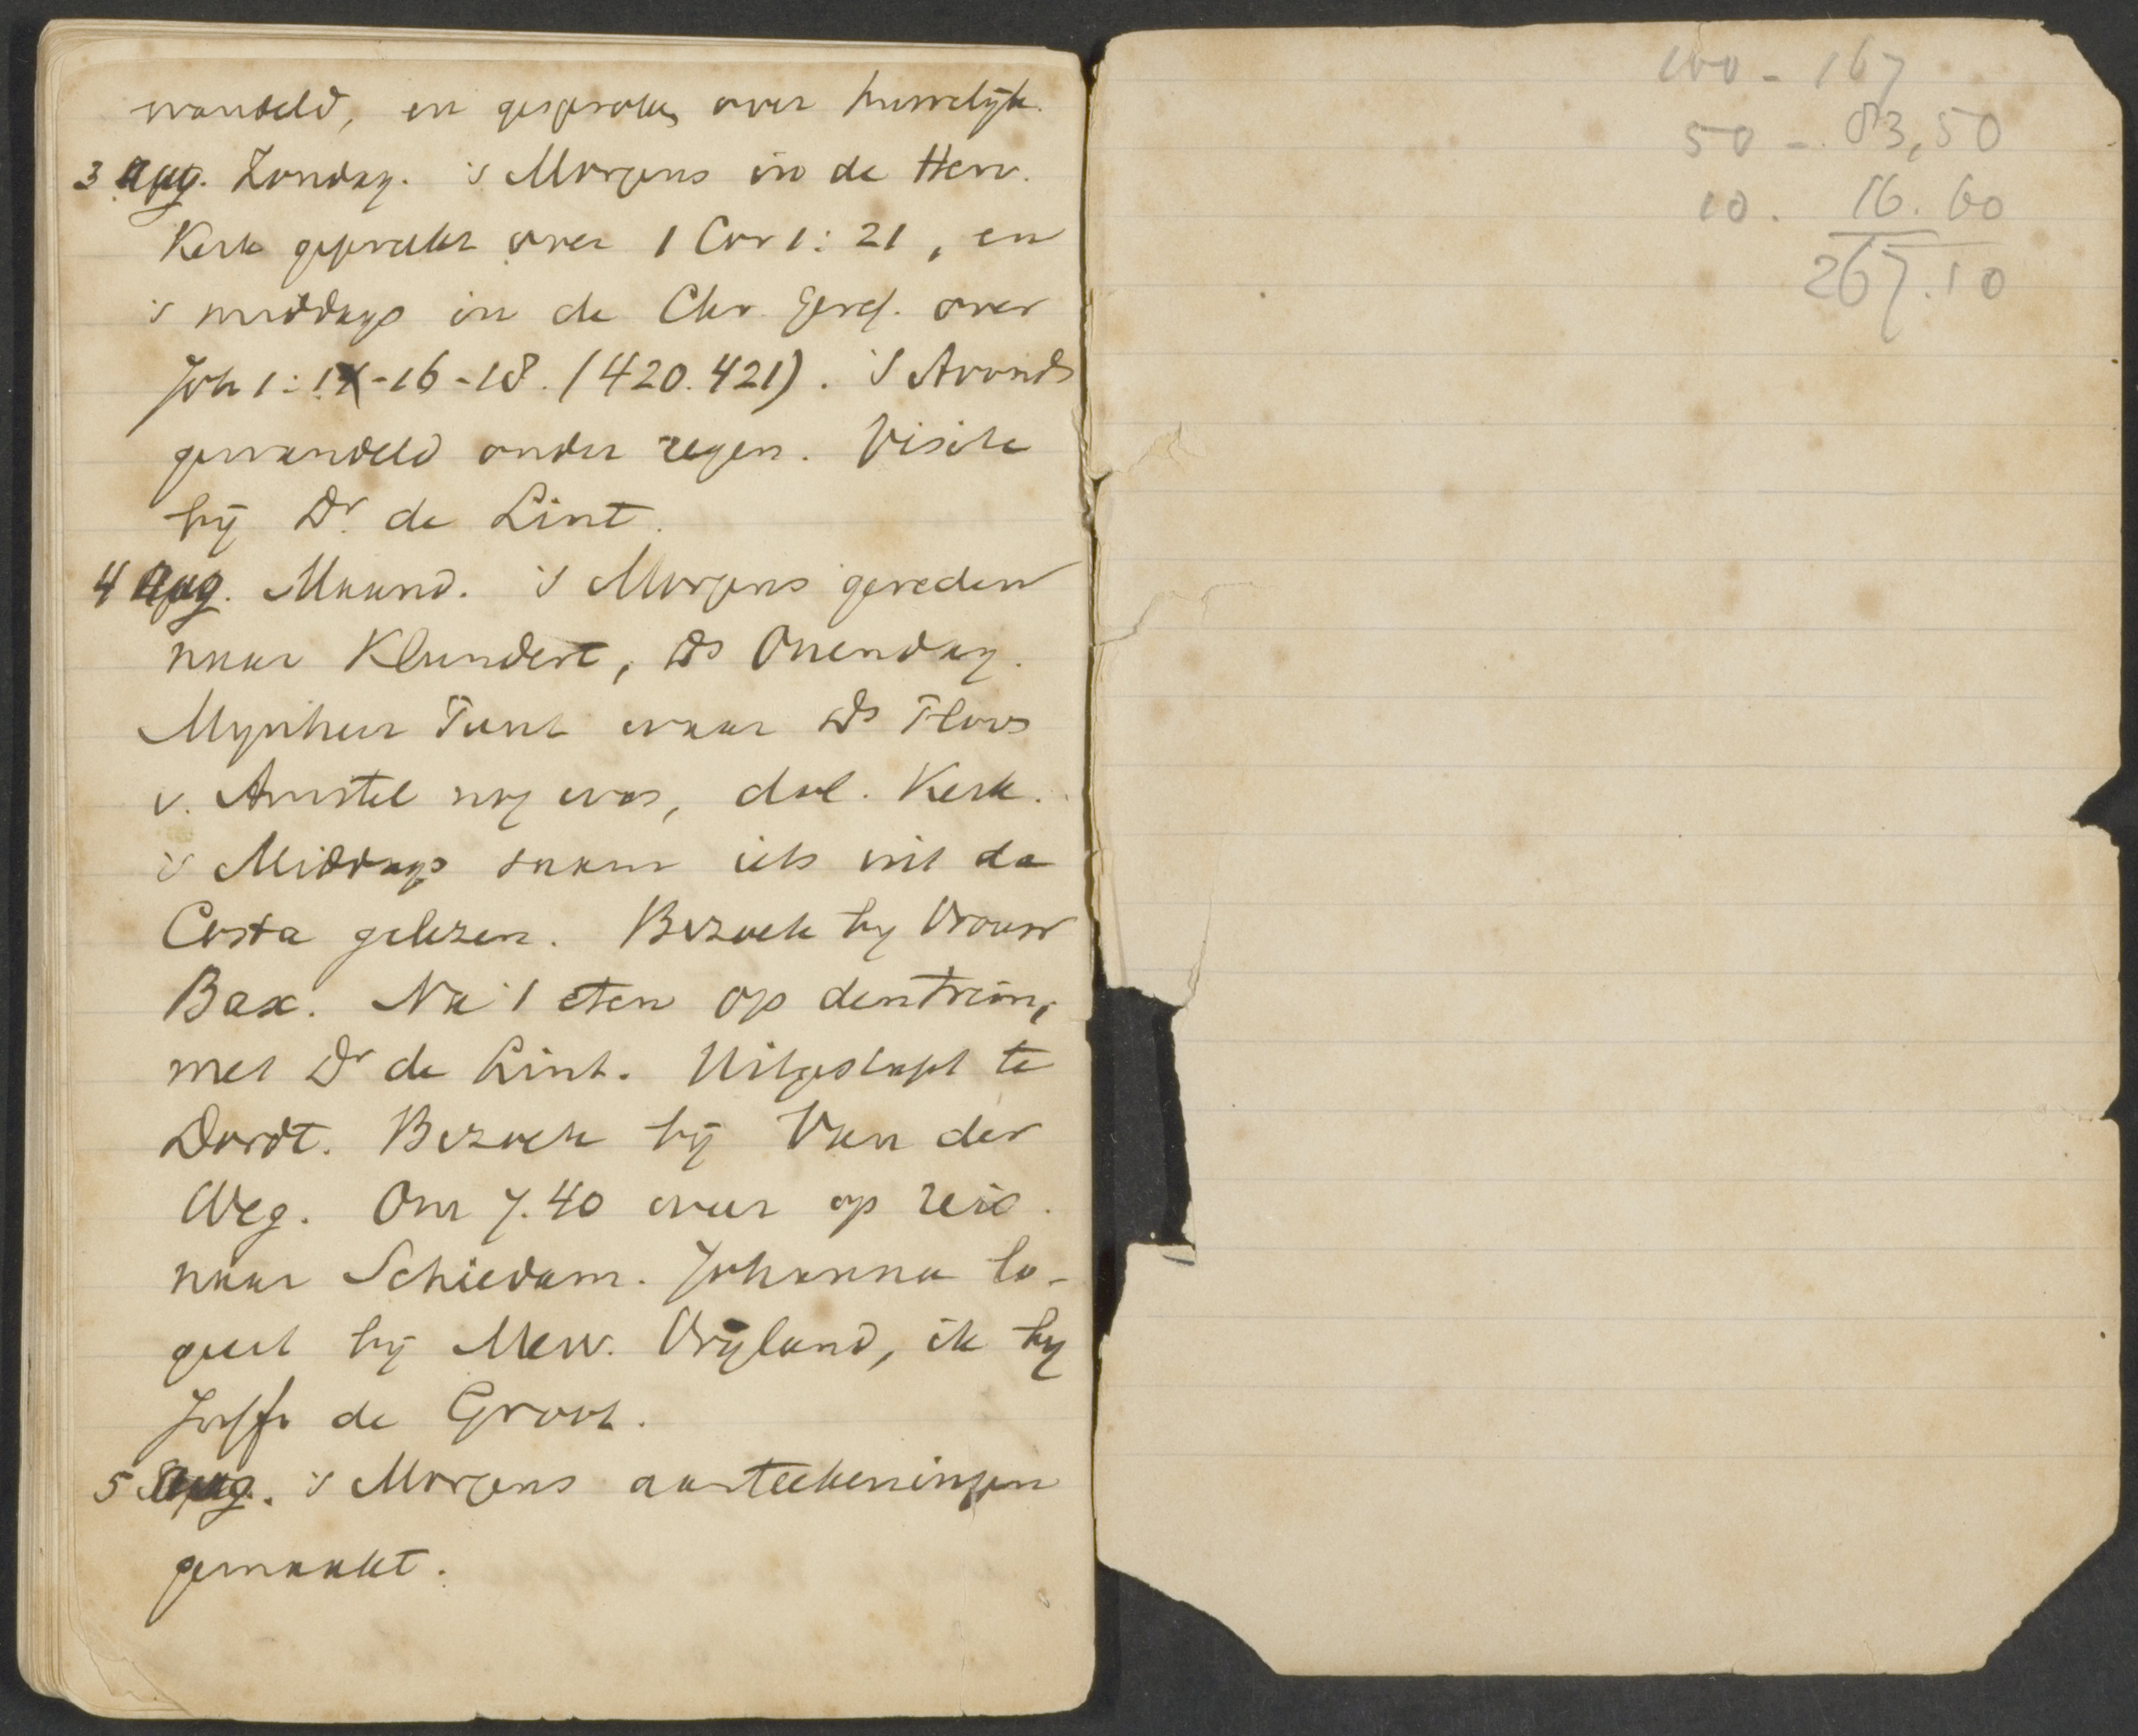 wandeld, en gesproken over huwelijk.
3 Aug. Zondag. 's Morgens in de Herv.
Kerk gepreekt over 1 Cor 1: 21, en
's middags in de Chr. Geref. over
Joh 1: 14-16-18. (420.421). 's Avonds
gewandeld onder regen. Visite
bij Dr. de Lint.
4 Aug. Maand. 's Morgens gereden
naar Klundert, Ds Ouendag.
Mijnheer Tant waar Ds Flors
v. Amstel nog was, dol. Kerk.
's Middags samen iets uit da
Costa gelezen. Bezoek bij Vrouw
Bax. Na 't eten op den trein,
met Dr de Lint. Uitgestapt te
Dordt. Bezoek bij Van der
Weg. Om 7.40 weer op reis
naar Schiedam. Johanna lo-
geert bij Mevr. Vrijland, ik bij
Juffr de Groot.
5 Aug. 's Morgens aanteekeningen
gemaakt.
100 - 167
50 - 83,50
10. 16.60
267.10